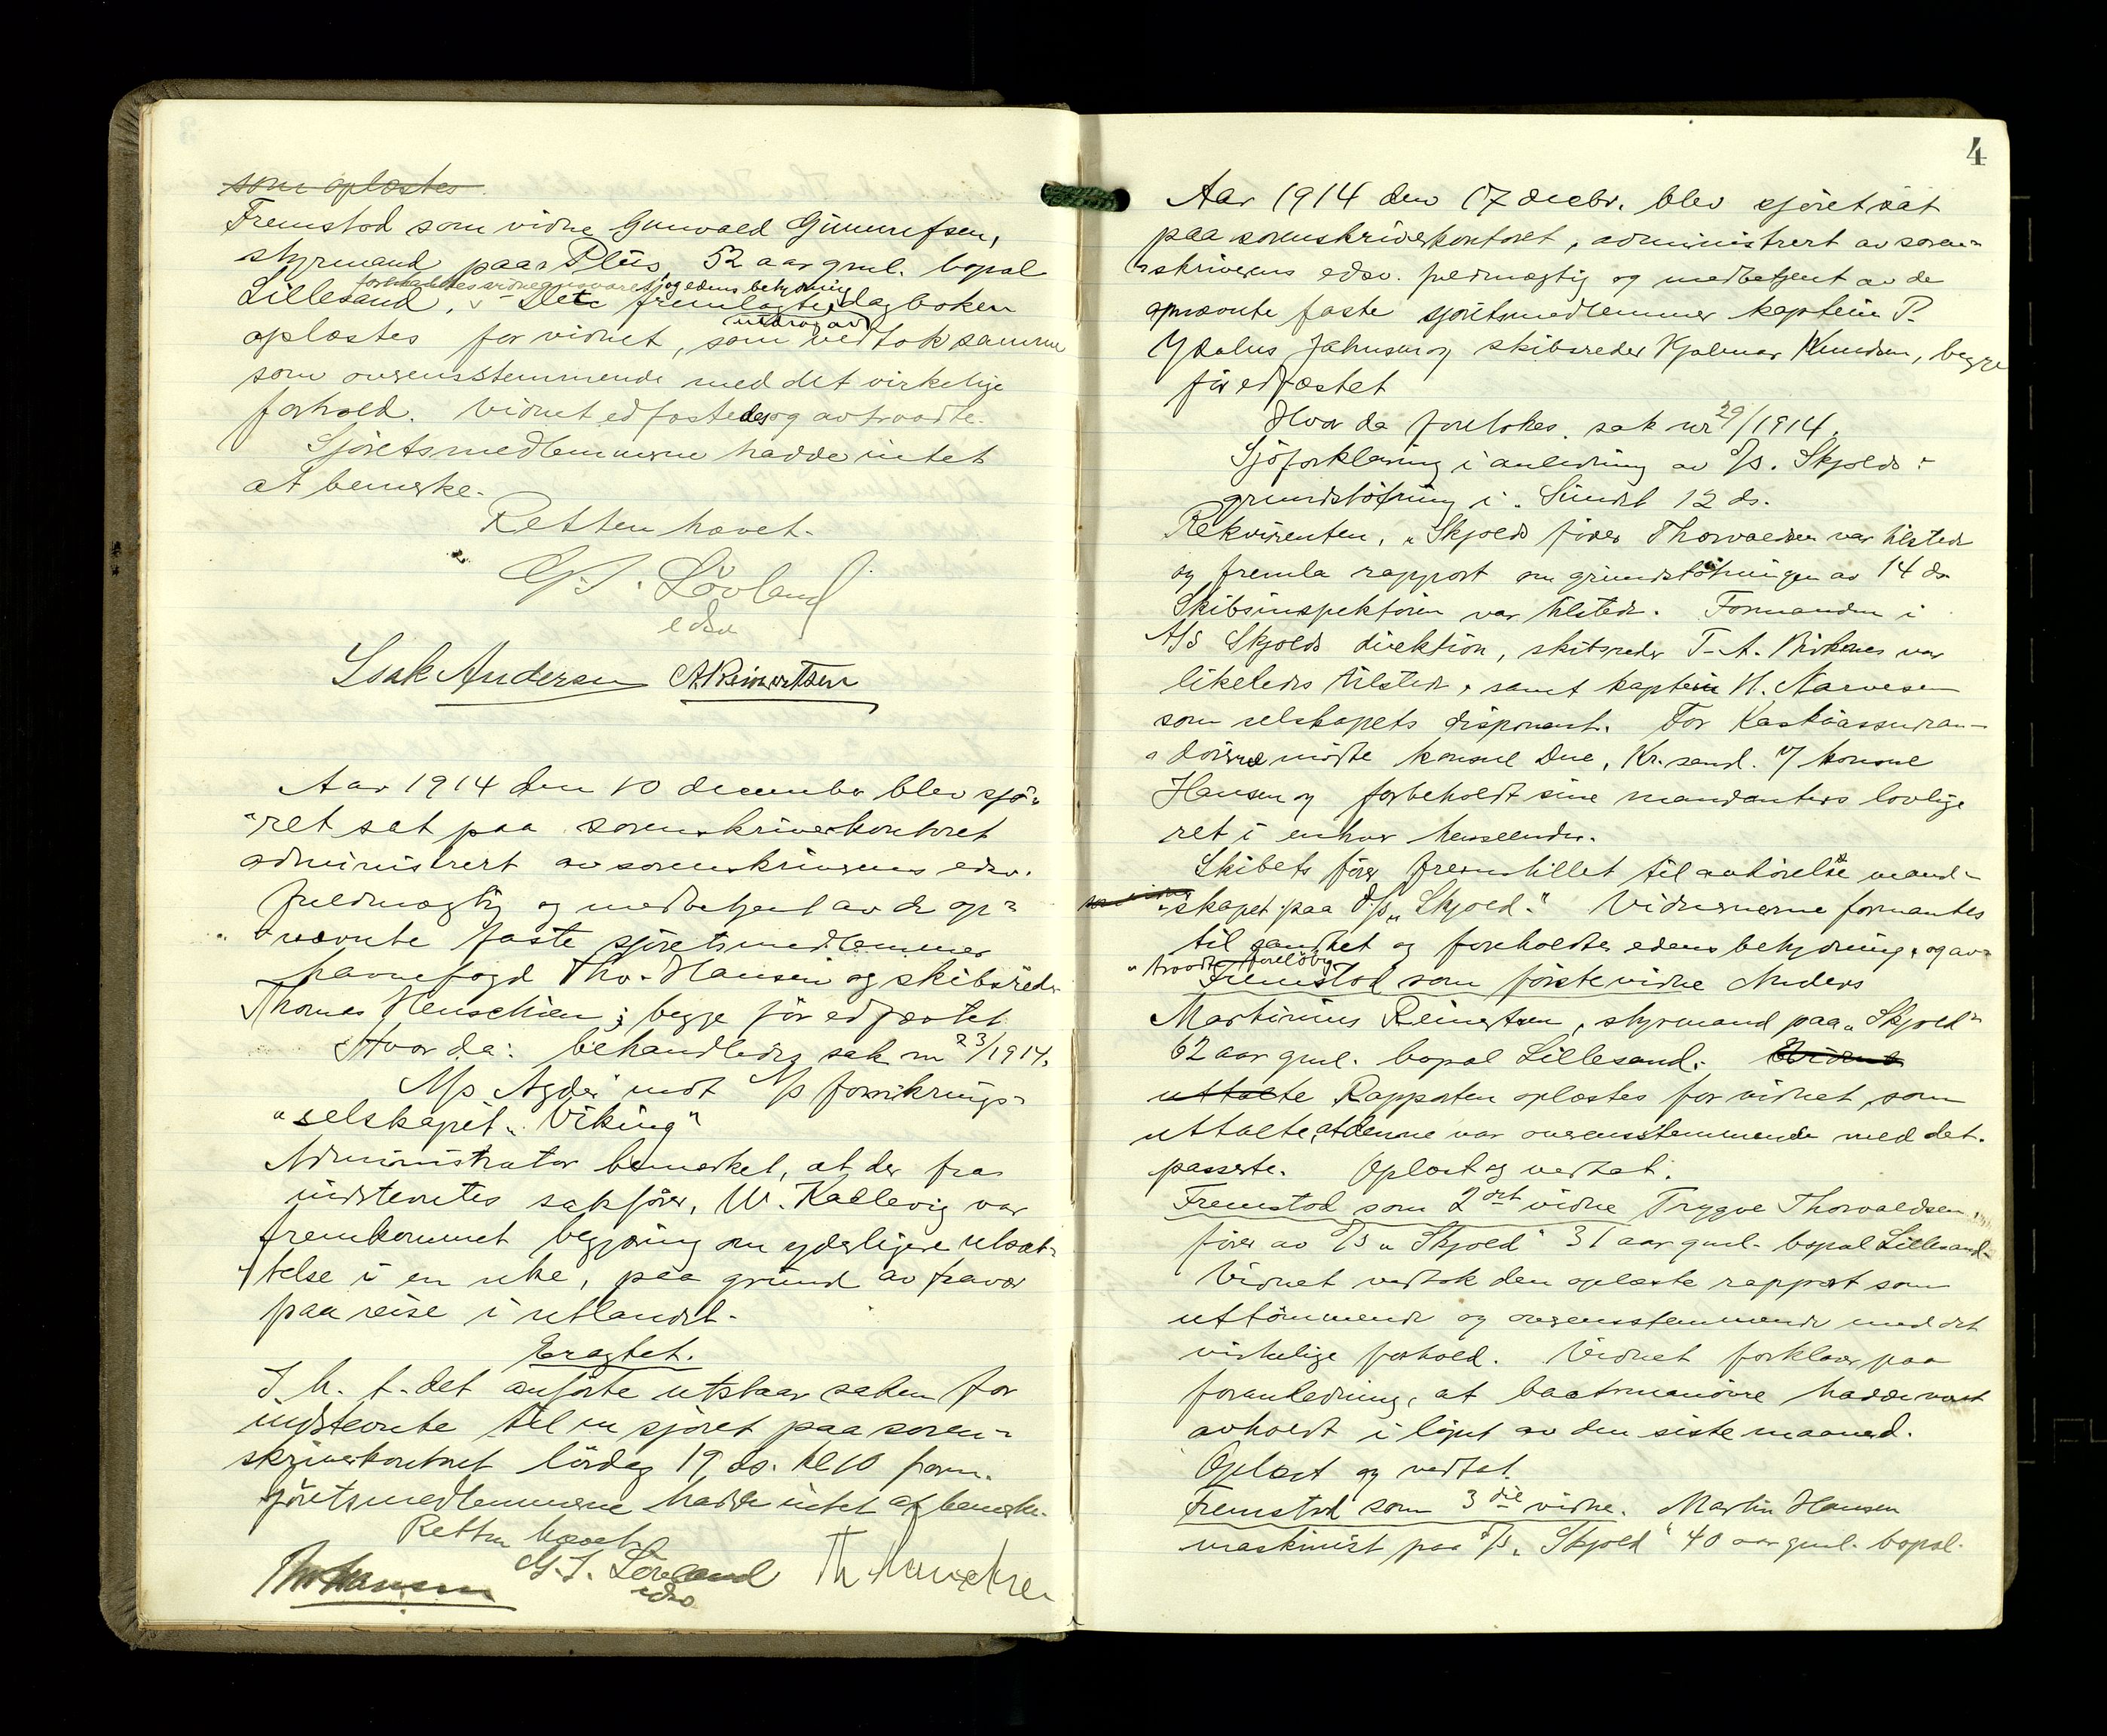 som oplæstes
Fremstod som vidne Gunvald Gunnufsen,
styrmand paa Pluis, 52 aar gml. bopæl
foreholdtes vidneansvaret og edens betydning
Lillesand. Det fremlagte dagboken
utdrag av
oplæstes for vidnet, som vedtok samme
som overensstemmende med det virkelige
forhold. Vidnet edfæstedes og avtraadte.
Sjøretsmedlemmerne hadde intet
at bemerke.
Retten hævet.
G. T. Lövland
edsv
Isak Andersen A Reinertsen
Aar 1914 den 10 december blev sjø-
ret sat paa sorenskriverkontoret
administrert av sorenskriverens edsv.
fuldmægtig og medbetjent av de op-
nævnte faste sjøretsmedlemmer
havnefogd Thv. Hansen og skibsreder
Thomas Henschien; begge før edfæstet.
Hvor da: behandledes sak nr 23/1914.
A/s Agder mot A/s forsikrings-
selskapet "Viking"
Administrator bemerket, at der fra
indstevntes sakfører, W. Kallevig var
fremkommet begjæring om yderligere utsæt-
telse i en uke, paa grund av fravær
paa reise i utlandet.
Eragtet.
I h. t. det anførte utstaar saken for
indstevnte til en sjøret paa soren-
skriverkontoret lørdag 19 ds. kl 10 form.
Sjøretsmedlemmerne hadde intet at bemerke.
Retten hævet
Thv Hansen G. T. Lövland Th Henschien
edsv
4
Aar 1914 den 17 decbr. blev sjøret sat
paa sorenskriverkontoret, administrert av soren-
skriverens edsv. fuldmægtig og medbetjent av de
opnævnte faste sjøretsmedlemmer kaptein P.
Ydalus Johnsen og skibsreder Hjalmar Knudsen, begge
før edfæstet
Hvor da foretokes sak nr 29/1914.
Sjøforklaring i anledning av D/S. Skjolds
grundstøtning i Sundet 12 ds.
Rekvirenten, "Skjolds fører Thorvaldsen var tilstede
og fremla rapport om grundstøtningen av 14 ds
Skibsinspektøren var tilstede. Formanden i
A/S Skjolds direktion, skibsreder T. A. Birkenes var
likeledes tilstede, samt kaptein H. Narvesen
som selskapets disponent. For Kaskoassuran-
dørerne møtte konsul Due, Kr.sand. v/ konsul
Hansen og forbeholdt sine mandanters lovlige
ret i enhver henseender.
Skibets fører fremstillet til avhørelse mand-
skapet paa D/S "Skjold." Vidnerne formantes
til sandhet og foreholdtes edens betydning, og av-
traadte foreløbig.
Fremstod som første vidne Anders
Martinius Reinertsen, styrmand paa "Skjold"
62 aar gml. bopæl Lillesand. Vidnet
uttalte Rapporten oplæstes for vidnet, som
uttalte, at denne var overensstemmende med det
passerte. Oplæst og vedtat.
Fremstod som 2det vidne Trygve Thorvaldsen,
fører av D/S "Skjold" 31 aar gml. bopæl Lillesand.
Vidnet vedtok den oplæste rapport som
uttømmende og overensstemmende med det
virkelige forhold. Vidnet forklarer paa
foranledning, at baatmanøvre hadde vært
avholdt i løpet av den siste maaned.
Oplæst og vedtat.
Fremstod som 3die vidne. Martin Hansen
maskinist paa D/S "Skjold" 40 aar gml. bopæl.